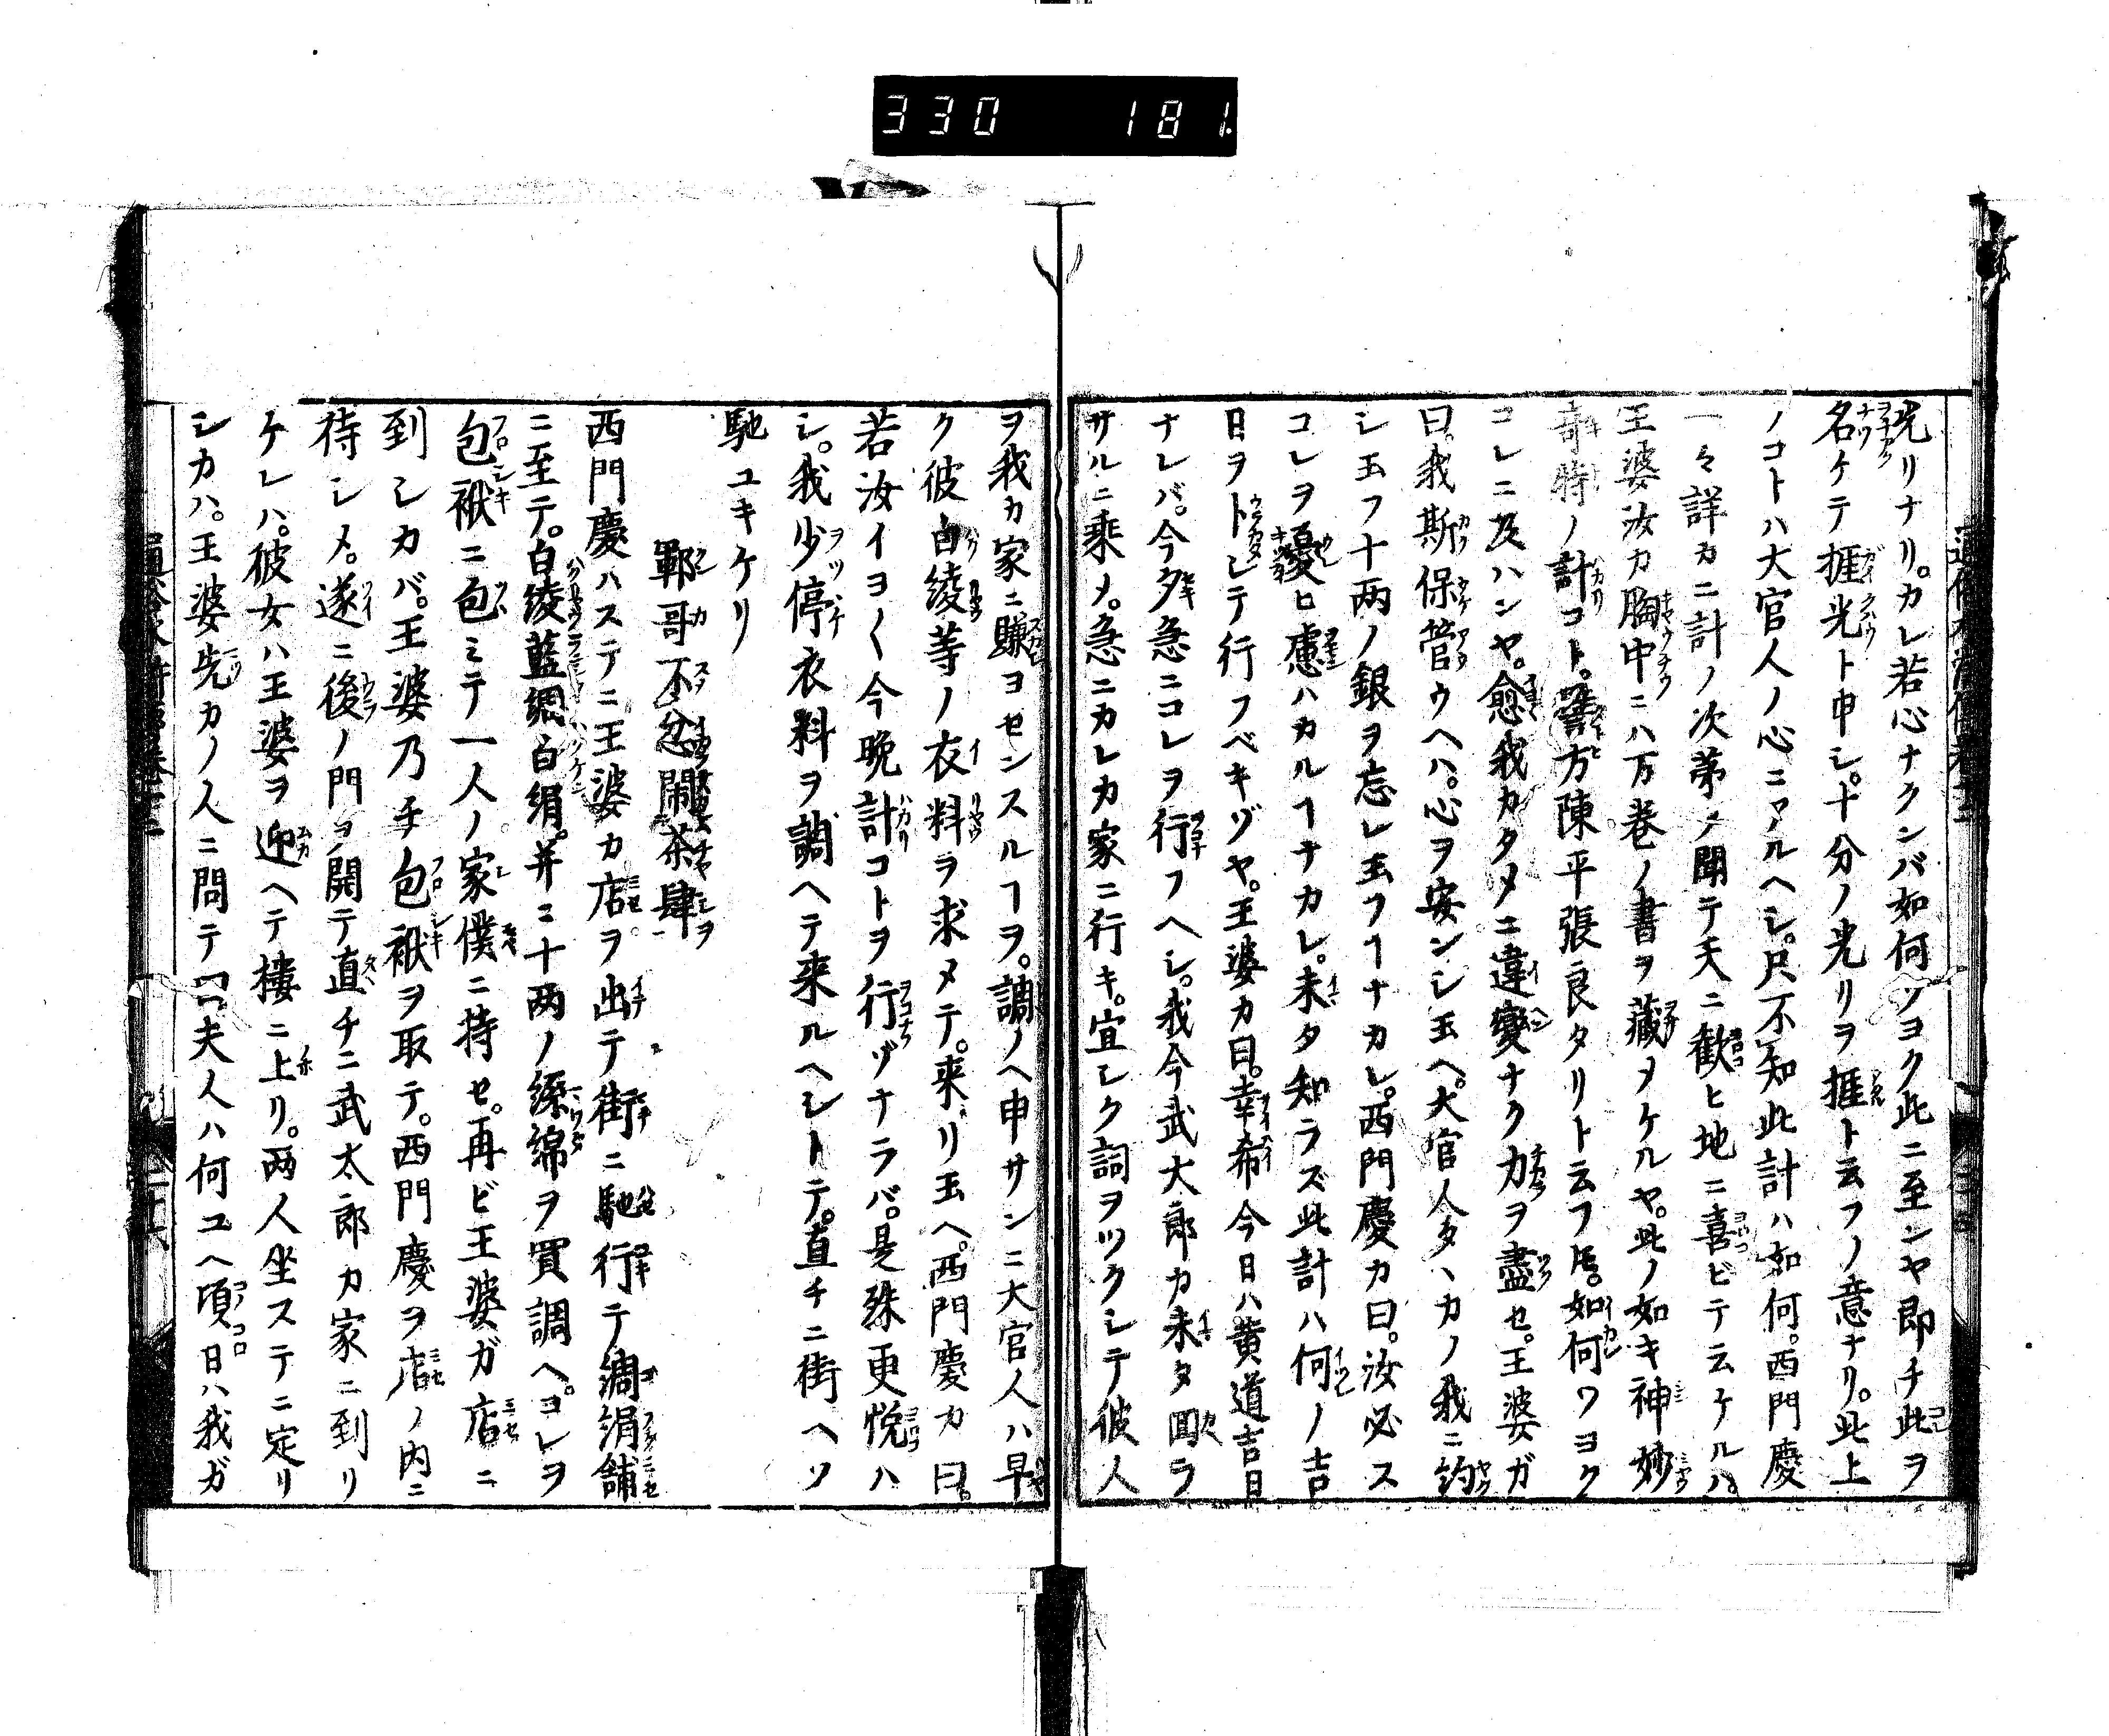 330 181
光リナリ。カレ若心ナクンバ如何ソヨク此ニ至ンヤ即チ此ヲ
名ケテ捱光ト申シ。十分ノ光リヲ捱ト云フノ意ナリ。此上
ノコトハ大官人ノ心ニアルヘシ。只不知此計ハ如何。西門慶
一々詳カニ計ノ次第ヲ聞テ天ニ歓ヒ地ニ喜ビテ云ケルハ
王婆汝カ胸中ニハ万巻ノ書ヲ藏メケルヤ。此ノ如キ神妙
奇特ノ計コト。譬方陳平張良タリト云フ𪜈。如何ワヨク
コレニ及ハンヤ。愈我カタメニ違變ナク力ヲ盡セ。王婆ガ
曰。我斯保管ウヘハ。心ヲ安ンシ玉ヘ。大官人タヽカノ我ニ約
シ玉フ十両ノ銀ヲ忘レ玉フヿナカレ。西門慶カ曰。汝必ス
コレヲ憂ヒ慮ハカルヿナカレ。未タ知ラズ此計ハ何ノ吉
日ヲトシテ行フベキゾヤ。王婆カ曰。幸希今日ハ黄道吉日
ナレバ。今夕急ニコレヲ行フヘシ。我今武大郎カ未タ回ラ
サルニ乗メ。急ニカレカ家ニ行キ。宜シク詞ヲツクシテ彼人
ヲ我カ家ニ賺ヨセンスルヿヲ。調ノヘ申サンニ大官人ハ早
ク彼白綾等ノ衣料ヲ求メテ。来リ玉ヘ。西門慶カ曰。
若汝イヨ〱今晩計コトヲ行ヅナラバ。是殊更悦ハ
シ。我少停衣料ヲ調ヘテ来ルヘシトテ。直チニ街ヘソ
馳ユキケリ
鄆哥不忿閙茶肆
西門慶ハステニ王婆カ店ヲ出テ街ニ馳行テ綢絹舗
ニ至テ。白綾藍綢白絹。并ニ十两ノ綿ヲ買調ヘ。コレヲ
包袱ニ包ミテ一人ノ家僕ニ持セ。再ビ王婆ガ店ニ
到シカバ。王婆乃チ包袱ヲ取テ。西門慶ヲ店ノ内ニ
待シメ。遂ニ後ノ門ヲ開テ直チニ武太郎カ家ニ到リ
ケレハ。彼女ハ王婆ヲ迎ヘテ樓ニ上リ。两人坐ステニ定リ
シカハ。王婆先カノ人ニ問テ曰夫人ハ何ユヘ頃日ハ我ガ